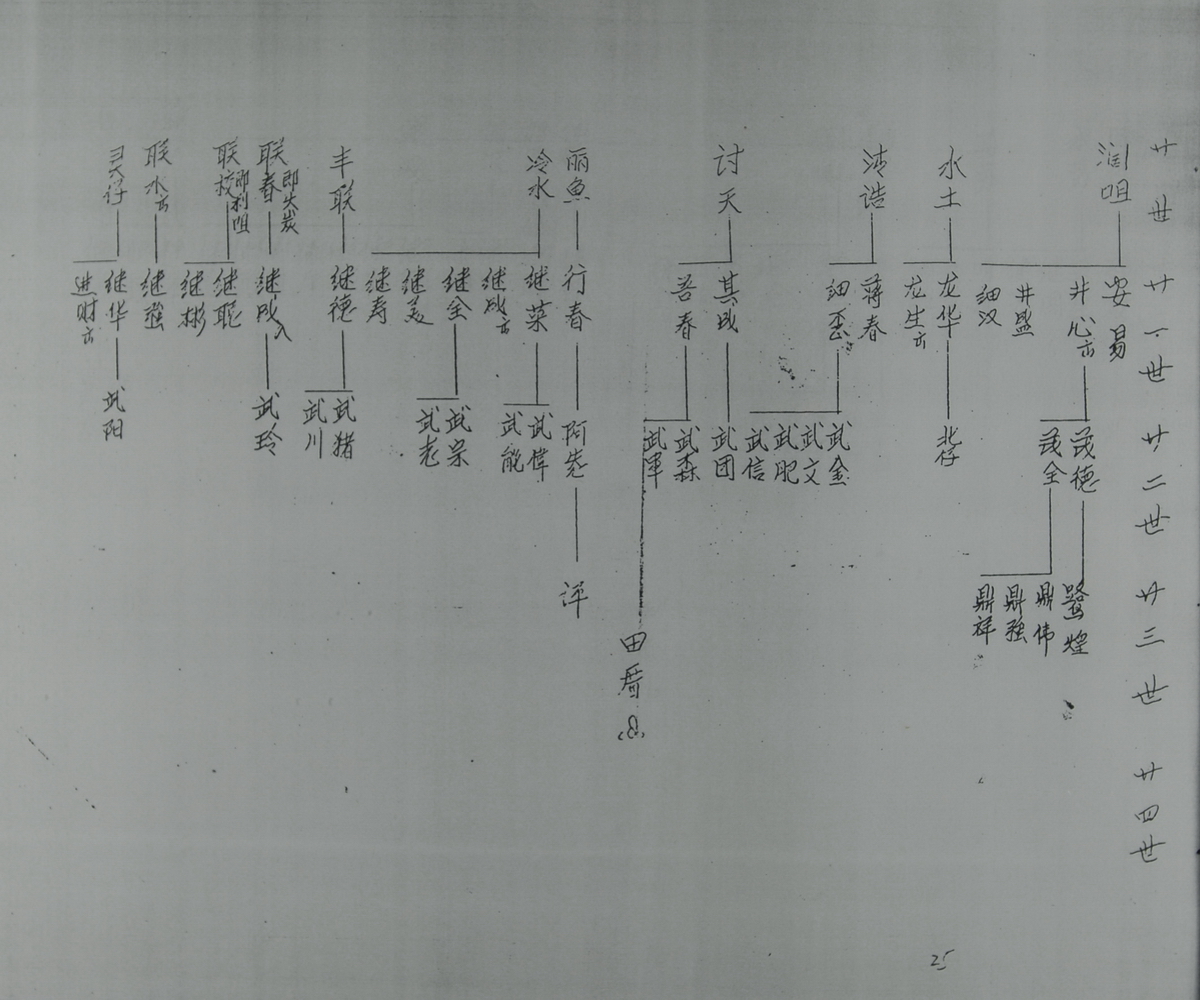 廿世
廿一世
廿二世
廿三世
廿四世
润咀
安易
井心六
井盛
细汉
茂德
茂全
煌
鼎伟
鼎强
鼎祥
水土
龙华
龙生六
涛诰
蒋春
细丕
武金
武文
武肥
武信
讨天
其成
吾春
武团
武森
武军
田厝(8)
丽鱼
行春
阿先
洋
冷水
继菜
继成六
继全
继美
继寿
武偉
武能
武宗
武老
丰联
继德
武猪
武川
联春
即火炭
继成入
武玲
联校
即利咀
继聪
继彬
联水六
继强
继华
进财六
武阳
25